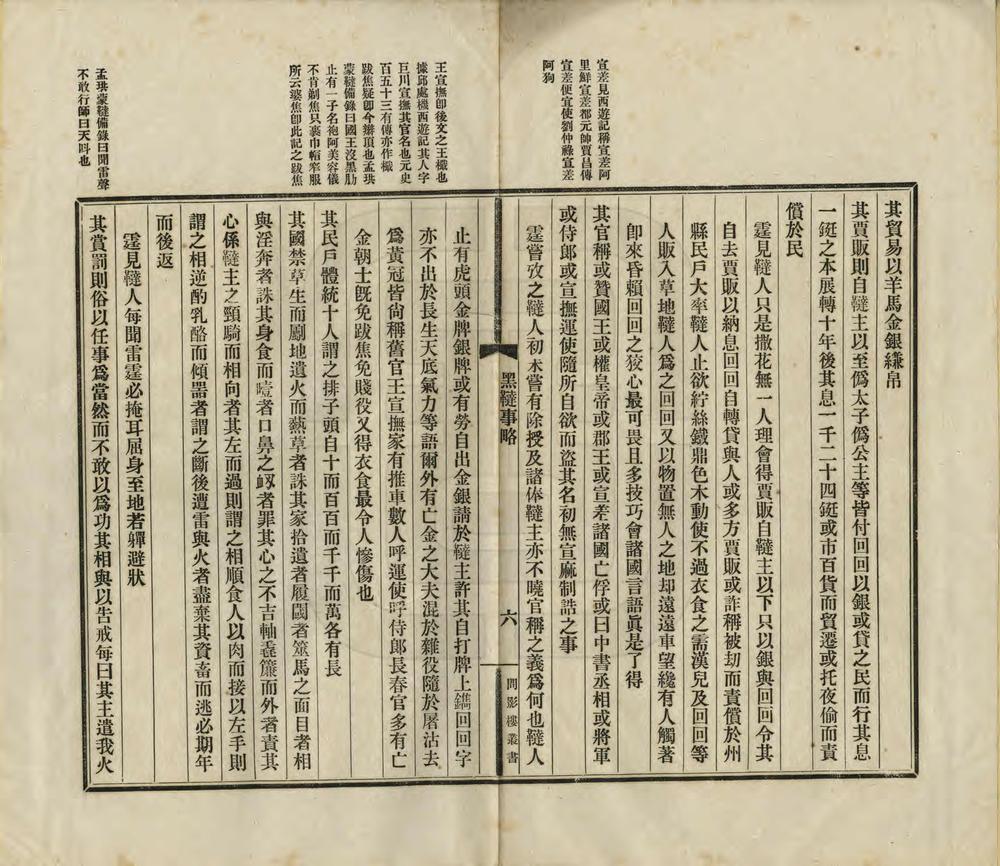 宣差見西遊記稱宣差阿
里鮮宣差都元帥賈昌傳
宣差便宜使劉仲祿宣差
阿狗
其貿易以羊馬金銀縑帛
其賈販則自韃主以至僞太子僞公主等皆付回回以銀或貸之民而行其息
一鋌之本展轉十年後其息一千二十四鋌或市百貨而貿遷或托夜偷而責
償於民
霆見韃人只是撒花無一人理會得賈販自韃主以下只以銀與回回令其
自去賈販以納息回回自轉貸與人或多方賈販或詐稱被劫而責償於州
縣民戶大率韃人止欲紵絲鐵鼎色木動使不過衣食之需漢兒及回回等
人販入草地韃人爲之回回又以物置無人之地却遠遠車望纔有人觸著
卽來昏賴回回之狡心最可畏且多技巧會諸國言語眞是了得
其官稱或贊國王或權皇帝或郡王或宣差諸國亡俘或曰中書丞相或將軍
或侍郎或宣撫運使隨所自欲而盜其名初無宣麻制誥之事
霆嘗攷之韃人初未嘗有除授及諸俸韃主亦不曉官稱之義爲何也韃人
黑韃事略
六
問影樓叢書
王宣撫卽後文之王檝也
據邱處機西遊記其人字
巨川宣撫其官名也元史
百五十三有傳亦作檝
跋焦疑卽今辮頂也孟珙
蒙韃備錄曰國王沒黑肋
止有一子名袍阿美容儀
不肯剃焦只裹巾帽窄服
所云婆焦卽此記之跋焦
孟珙蒙韃備錄曰聞雷聲
不敢行師曰天呌也
止有虎頭金牌銀牌或有勞自出金銀請於韃主許其自打牌上鐫回回字
亦不出於長生天底氣力等語爾外有亡金之大夫混於雜役隨於屠沽去
爲黃冠皆尙稱舊官王宣撫家有推車數人呼運使呼侍郎長春官多有亡
金朝士旣免跋焦免賤役又得衣食最令人慘傷也
其民戶體統十人謂之排子頭自十而百百而千千而萬各有長
其國禁草生而劚地遺火而爇草者誅其家拾遺者履閾者箠馬之面目者相
與淫奔者誅其身食而噎者口鼻之衂者罪其心之不吉軸毳簾而外者責其
心係韃主之頸騎而相向者其左而過則謂之相順食人以肉而接以左手則
謂之相逆酌乳酪而傾器者謂之斷後遭雷與火者盡棄其資畜而逃必期年
而後返
霆見韃人每聞雷霆必掩耳屈身至地若軃避狀
其賞罰則俗以任事爲當然而不敢以爲功其相與以吿戒每曰其主遣我火